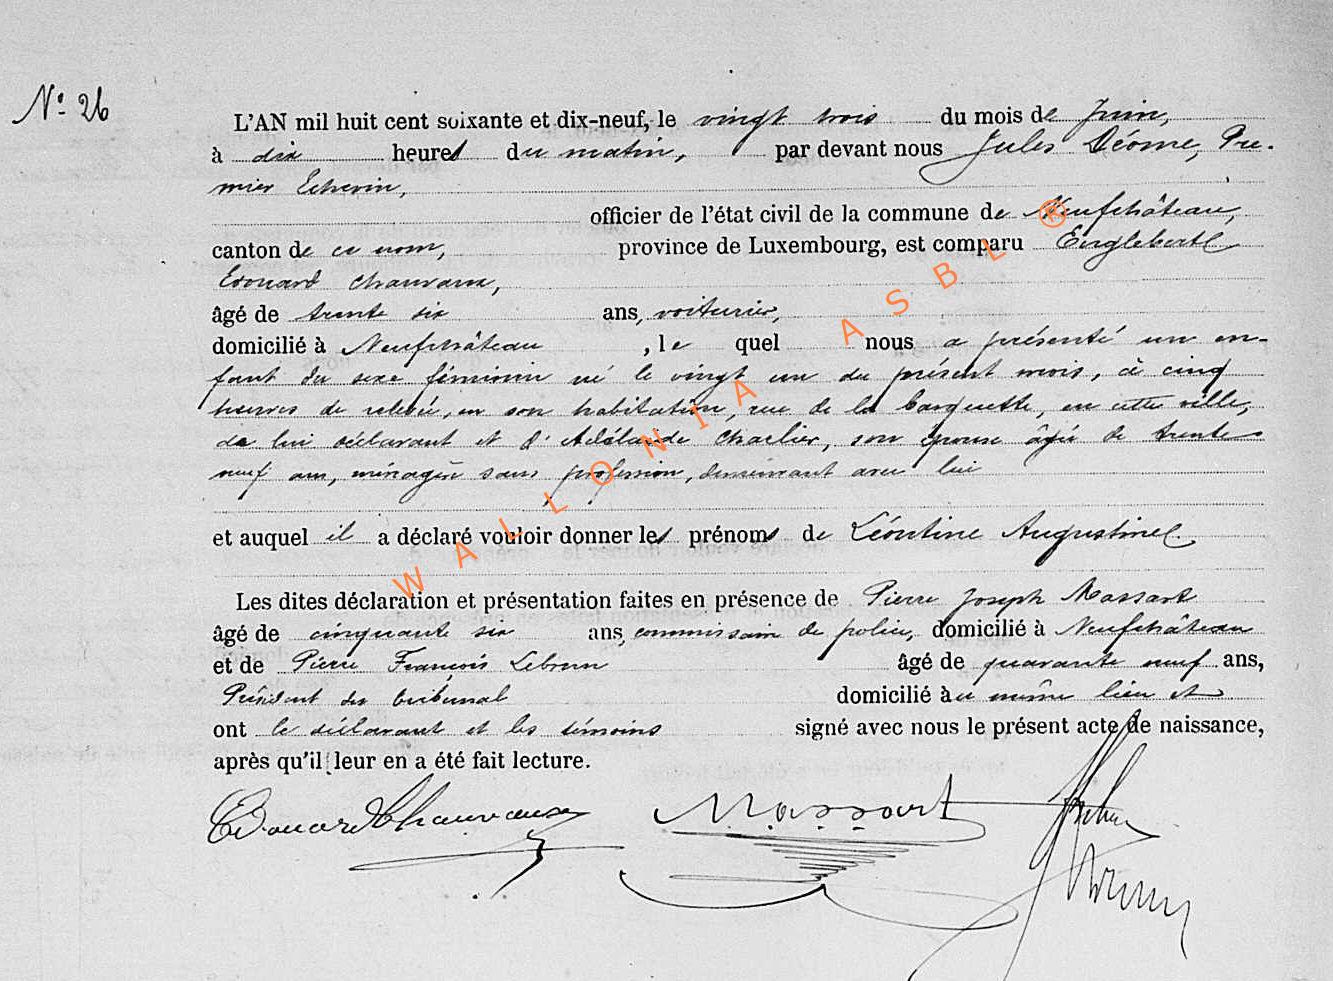 N° 26
L'AN mil huit cent soixante et dix-neuf, le vingt trois du mois de Juin,
à dix heures du matin, par devant nous Jules Déome, Pre-
mier Echevin,
officier de l'état civil de la commune de Neufchâteau,
canton de ce nom, province de Luxembourg, est comparu Englebert
Edouard Chauvaux,
âgé de trente six ans, voiturier,
domicilié à Neufchâteau, le quel nous a présenté un en-
fant du sexe féminin né le vingt un du présent mois, à cinq
heures de relevée, en son habitation, rue de la barquette, en cette ville,
de lui déclarant et d'Adélaïde Charlier, son épouse âgée de trente
neuf ans, ménagère sans profession, demeurant avec lui
et auquel il a déclaré vouloir donner les prénoms de Léontine Augustine.
Les dites déclaration et présentation faites en présence de Pierre Joseph Massart
âgé de cinquante six ans, commissaire de police, domicilié à Neufchâteau
et de Pierre François Lebrun âgé de quarante neuf ans,
Président du tribunal domicilié au même lieu et
ont le déclarant et les témoins signé avec nous le présent acte de naissance,
après qu'il leur en a été fait lecture.
Edouard Chauvaux Massart
WALLONIA ASBL ®